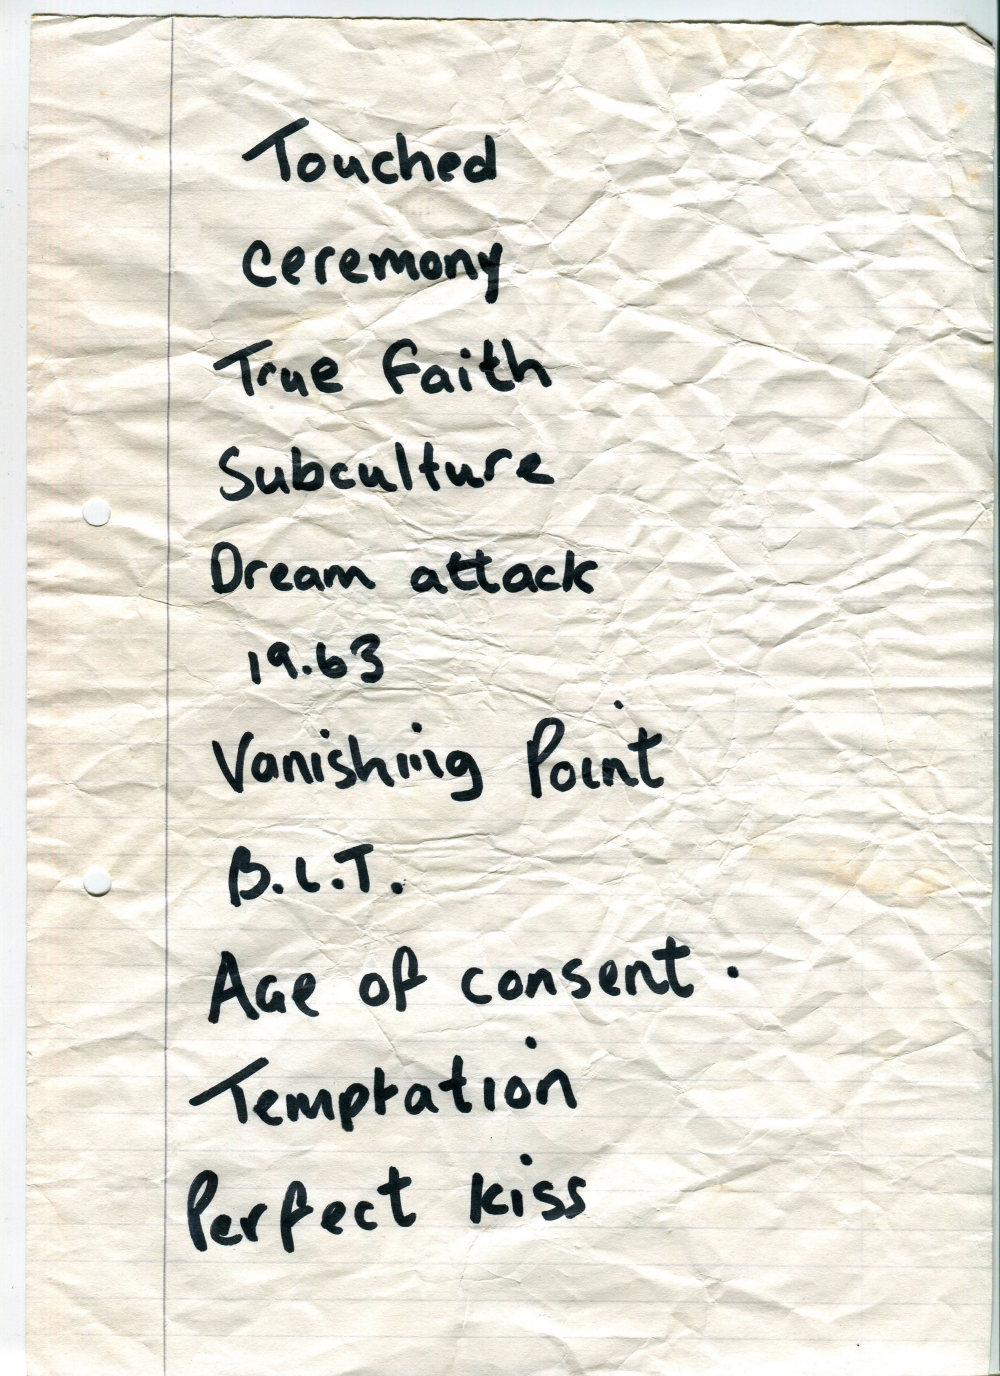 Touched
Ceremony
True Faith
Subculture
Dream attack
19.63
Vanishing Point
B.L.T.
Age of consent.
Temptation
Perfect kiss